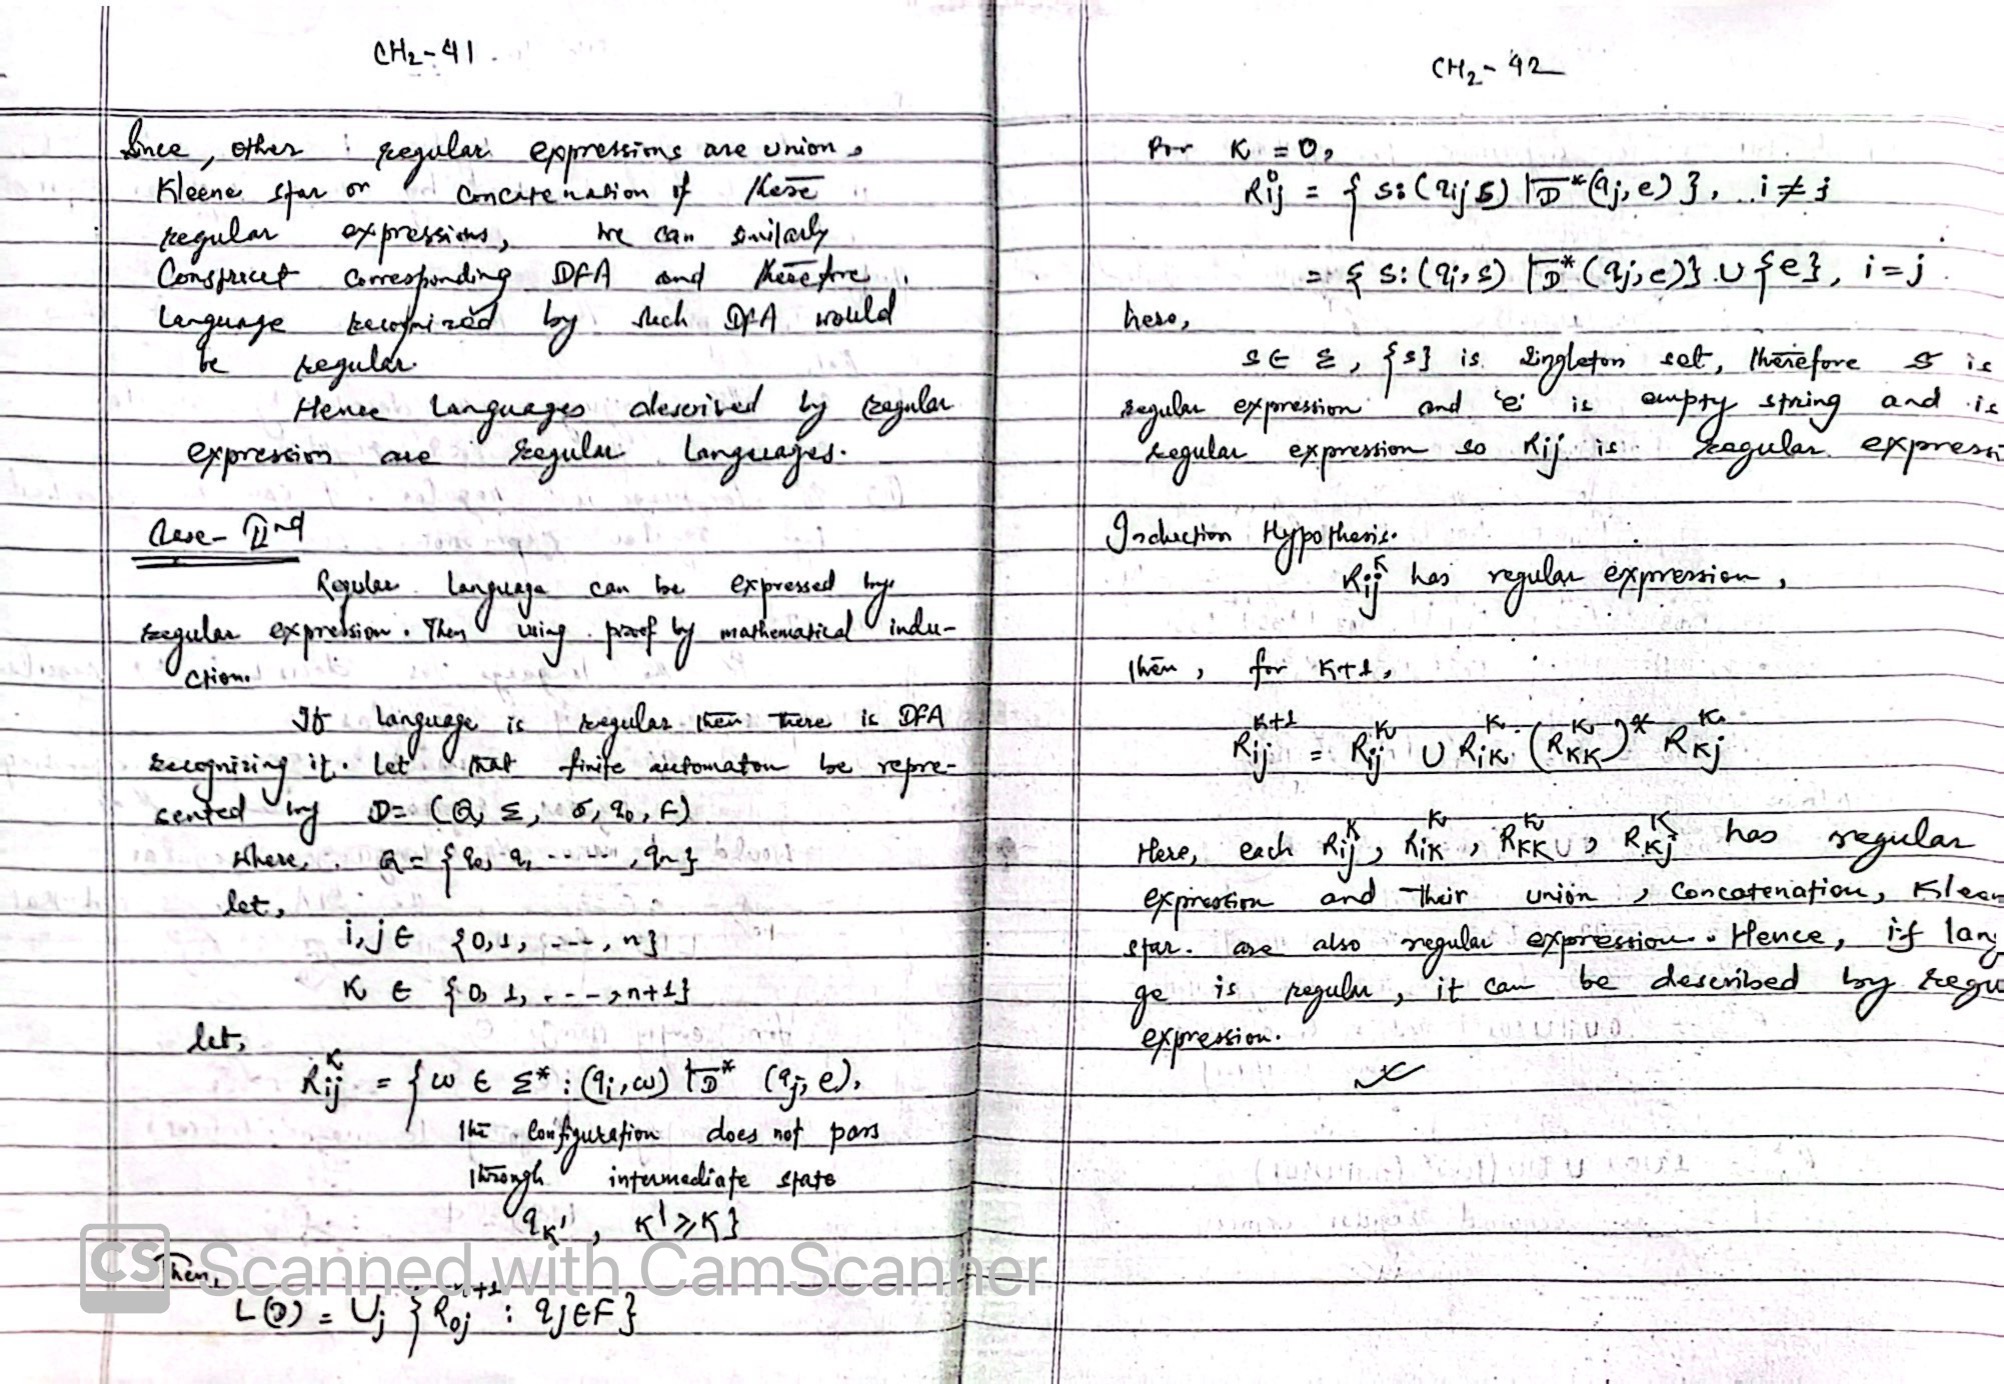 CH2-41
Since, other regular expressions are union,
Kleene star or concatenation of these
regular expressions, we can similarly
Construct corresponding DFA and therefore
language recognized by such DFA would
be regular.
Hence languages described by regular
expression are regular languages.
Case-IInd
Regular language can be expressed by
regular expression. Then using proof by mathematical indu-
ction.
If language is regular then there is DFA
recognizing it. Let that finite automaton be repre-
sented by D= (Q, Σ, σ, q0, F)
where, Q = {q0, q1 ....., qn}
let,
i, j ∈ {0,1, ...., n}
K ∈ {0, 1, ...., n+1}
let,
R_ij^K = {w ∈ Σ* : (qi, w) |-D* (qj, e),
the configuration does not pass
through intermediate state
qK', K' ≥ K}
Then,
L(D) = ∪j {R_0j^n+1 : qj ∈ F}
CS Scanned with CamScanner
CH2-42
For K = 0,
R_ij^0 = {s: (qi, s) |-D* (qj, e)}, i ≠ j
= {s: (qi, s) |-D* (qj, e)} ∪ {e}, i = j
here,
s ∈ Σ, {s} is singleton set, therefore s is
regular expression and 'e' is empty string and is
regular expression so Rij is regular expressi
Induction Hypothesis.
R_ij^K has regular expression,
then, for K+1,
R_ij^K+1 = R_ij^K ∪ R_iK^K . (R_KK^K)* R_Kj^K
Here, each R_ij^K, R_iK^K, R_KK^K ∪, R_Kj^K has regular
expression and their union, concatenation, Kleen
star. are also regular expression. Hence, if lang
ge is regular, it can be described by regu
expression.